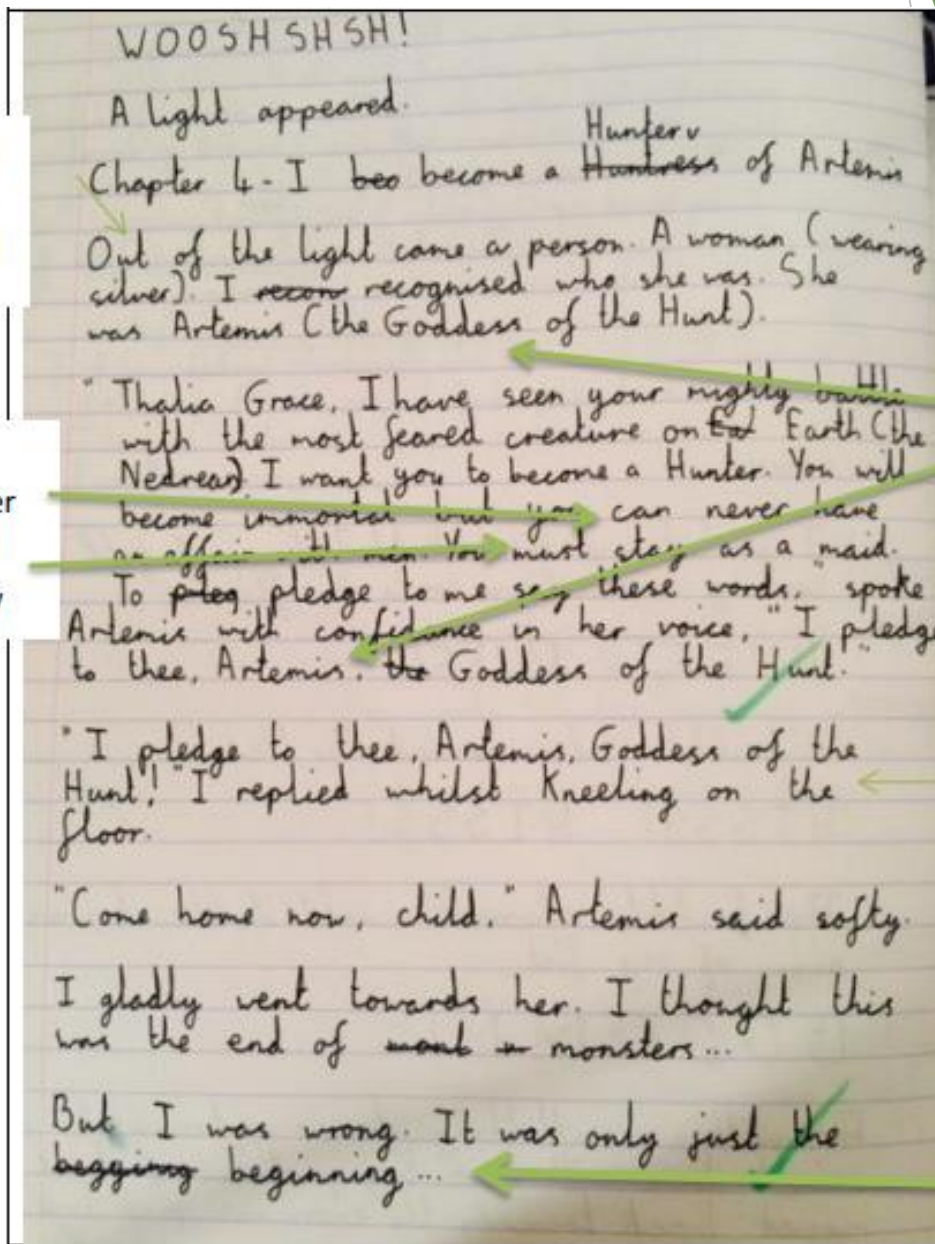 WOOSHSHSH!
A light appeared.
Hunter
Chapter 4 - I beo become a Huntress of Artemis
Out of the light came a person. A woman (wearing
silver). I recon recognised who she was. She
was Artemis (the Goddess of the Hunt).
"Thalia Grace, I have seen your mighty battle
with the most feared creature on Eat Earth (the
Nedrean) I want you to become a Hunter. You will
er
become immortal but you can never have
an affair with men. You must stay as a maid.
To pleg pledge to me say these words," spoke
Artemis with confidance in her voice, "I pledge
to thee, Artemis, the Goddess of the Hunt."
"I pledge to thee, Artemis, Goddess of the
Hunt!" I replied whilst Kneeling on the
floor.
"Come home now, child." Artemis said softy.
I gladly went towards her. I thought this
was the end of monsters...
But I was wrong. It was only just the
begging beginning...